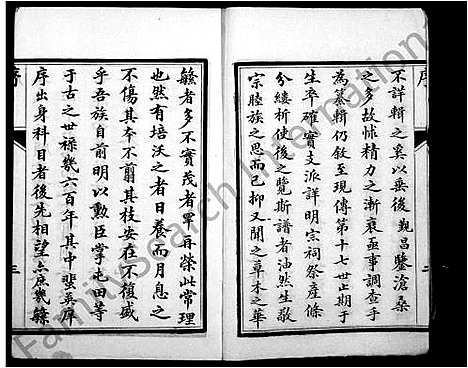 序
不詳輯之奚以垂後觀昌鑒滄桑
之多故怵精力之漸衰亟事調查手
為纂輯仍敘至現傳第十七世止期于
生卒確實支派詳明宗祠祭產條
分縷析使後之覽斯譜者油然生敬
宗睦族之思而已抑又聞之草木之華
二
繇者多不實茂者罕再榮此常理
也然有培沃之者日養而月息之
不傷其本不翦其枝安在不復盛
乎吾族自前明以勳臣掌屯田等
于古之世祿幾六百年其中蜚英庠
序出身科目者後先相望亦庶幾繇
序
三
FamilySearch International